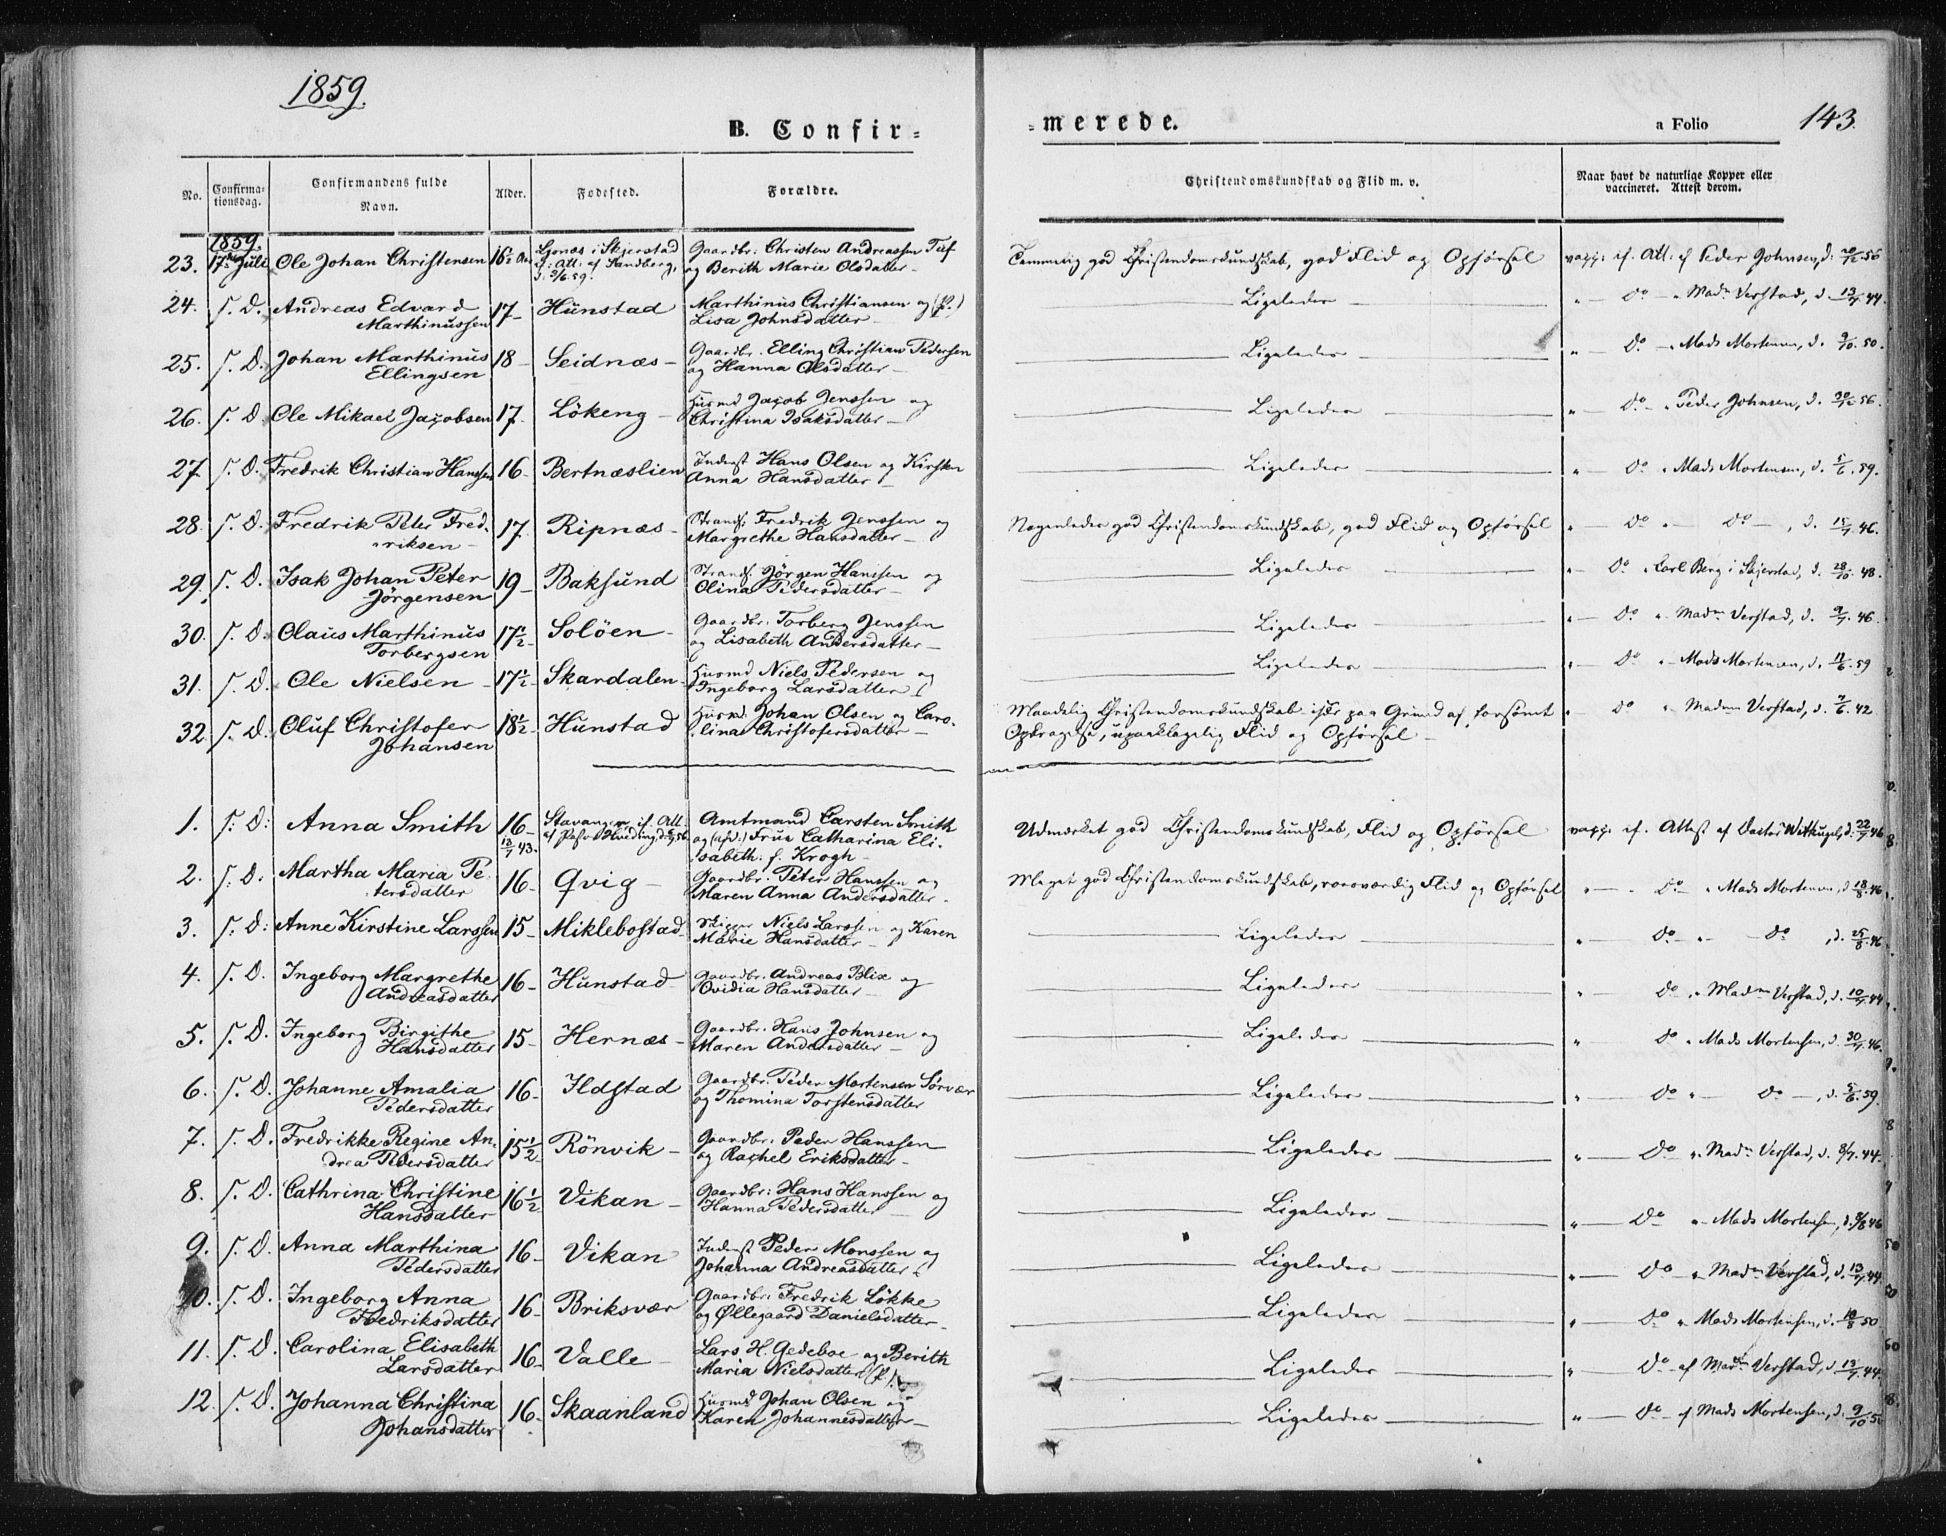 1859.
B. Confir=
=merede.
a Folio
143.
No.
Confirma-
tionsdag.
Confirmandens fulde
Navn.
Alder.
Fødested.
Forældre.
Christendomskundskab og Flid m. v.
Naar havt de naturlige Kopper eller
vaccineret. Attest derom.
1859.
23. 17de Juli Ole Johan Christensen 16½ Skjerstad Gaardbr. Christen Andreassen
og Berith Marie Olsdatter Temmelig god Christendomskundskab, god Flid og Opførsel vacc. if. Att. af Peder Johnsen, d.
24. s. D. Andreas Edvard
Marthinussen 17 Hunstad Marthinus Christiansen og (f.)
Lisa Johnsdatter Ligeledes Do Madm Verstad, d. 13/7 44.
25. s. D. Johan Marthinus
Ellingsen 18 Seidnæs Gaardbr. Elling Christian Pedersen
og Hanna Olsdatter Ligeledes Do Mads Mortensen, d. 9/10. 50.
26. s. D. Ole Mikael Jacobsen 17 Lökeng Husmd Jacob Jenssen og
Christina Isaksdatter Ligeledes Do Peder Johnsen, d. 56.
27. s. D. Fredrik Christian Hanssen 16 Bertnæslien Inderst Hans Olsen og Kirsten
Anna Hansdatter Ligeledes Do Mads Mortensen, d. 5/6. 59.
28. s. D. Fredrik Peter Fred-
riksen 17 Ripnæs Strands. Fredrik Jenssen og
Margrethe Hansdatter Nogenledes god Christendomskundskab, god Flid og Opførsel Do Do, d. 15/7. 46.
29. s. D. Isak Johan Peter
Jörgensen 19 Baksund Strands. Jörgen Hanssen og
Olina Pedersdatter Ligeledes Do Carl Berg i Skjerstad, d. 28/10. 48.
30. s. D. Claus Marthinus
Torbergsen 17½ Solöen Gaardbr. Torberg Jenssen
og Lisabeth Andersdatter Ligeledes Do Madm Verstad, d. 9/7. 46.
31. s. D. Ole Nielsen 17½ Skardalen Husmd Niels Pedersen og
Ingeborg Larsdatter Ligeledes Do Mads Mortensen, d. 11/6. 59
32. s. D. Oluf Christofer
Johansen 18½ Hunstad Husmd. Johan Olsen og Caro-
lina Christofersdatter Maadelig Christendomskundskab især paa Grund af forsömt
Opdragelse, upaaklagelig Flid og Opførsel Do Madm Verstad, d. 7/6. 42
1. s. D. Anna Smith 16
12/7 43. Stavanger if. Att.
af Amtmand Carsten Smith
og (afd.) Frue Catharina Eli-
sabeth f. Krogh Udmærket god Christendomskundskab, Flid og Opførsel vacc. if. Attest af d. 22/7 46
2. s. D. Martha Maria Pe-
tersdatter 16 Qvig Gaardbr. Peter Hanssen og
Maren Anna Andersdatter Meget god Christendomskundskab, roesværdig Flid og Opførsel Do Mads Mortensen, d. 18/8. 46
3. s. D. Anne Kirstine Larssen 15 Miklebostad Skipper Niels Larssen og Karen
Marie Hansdatter Ligeledes Do Do, d. 25/8. 46.
4. s. D. Ingeborg Margrethe
Andreasdatter 16 Hunstad Gaardbr. Andreas Blix og
Ovidia Hansdatter Ligeledes Do Madm Verstad, d. 10/7. 44
5. s. D. Ingeborg Birgithe
Hansdatter 15 Hernæs Gaardbr. Hans Johnsen og
Maren Andersdatter Ligeledes Do Mads Mortensen, d. 30/7. 46.
6. s. D. Johanne Amalia
Pedersdatter 16 Ildstad Gaardbr. Peder Mortensen Sörvær
og Thomina Torstensdatter Ligeledes Do Do, d. 5/6. 59.
7. s. D. Fredrikke Regine An-
drea Pedersdatter 15½ Rönvik Gaardbr. Peder Hanssen
og Rachel Eriksdatter Ligeledes Do Madm Verstad, d. 8/7. 44.
8. s. D. Cathrina Christine
Hansdatter 16½ Vikan Gaardbr. Hans Hanssen og
Hanna Pedersdatter Ligeledes Do Mads Mortensen, d. 46
9. s. D. Anna Marthina
Pedersdatter 16 Vikan Inderst Peder Monssen og
Johanna Andreasdatter Ligeledes Do Madm Verstad, d. 13/7 44.
10. s. D. Ingeborg Anna
Fredriksdatter 16 Briksvær Gaardbr. Fredrik Lökke
og Øllegaard Danielsdatter Ligeledes Do Mads Mortensen, d. 50
11. s. D. Carolina Elisabeth
Larsdatter 16 Valle Lars H. Gedeboe og Berith
Maria Nielsdatter (f.) Ligeledes Do af Madm Verstad, d. 13/7. 44.
12. s. D. Johanna Christina
Johansdatter 16 Skaanland Husmd Johan Olsen og
Karen Johannesdatter Ligeledes Do af Mads Mortensen, d. 9/10